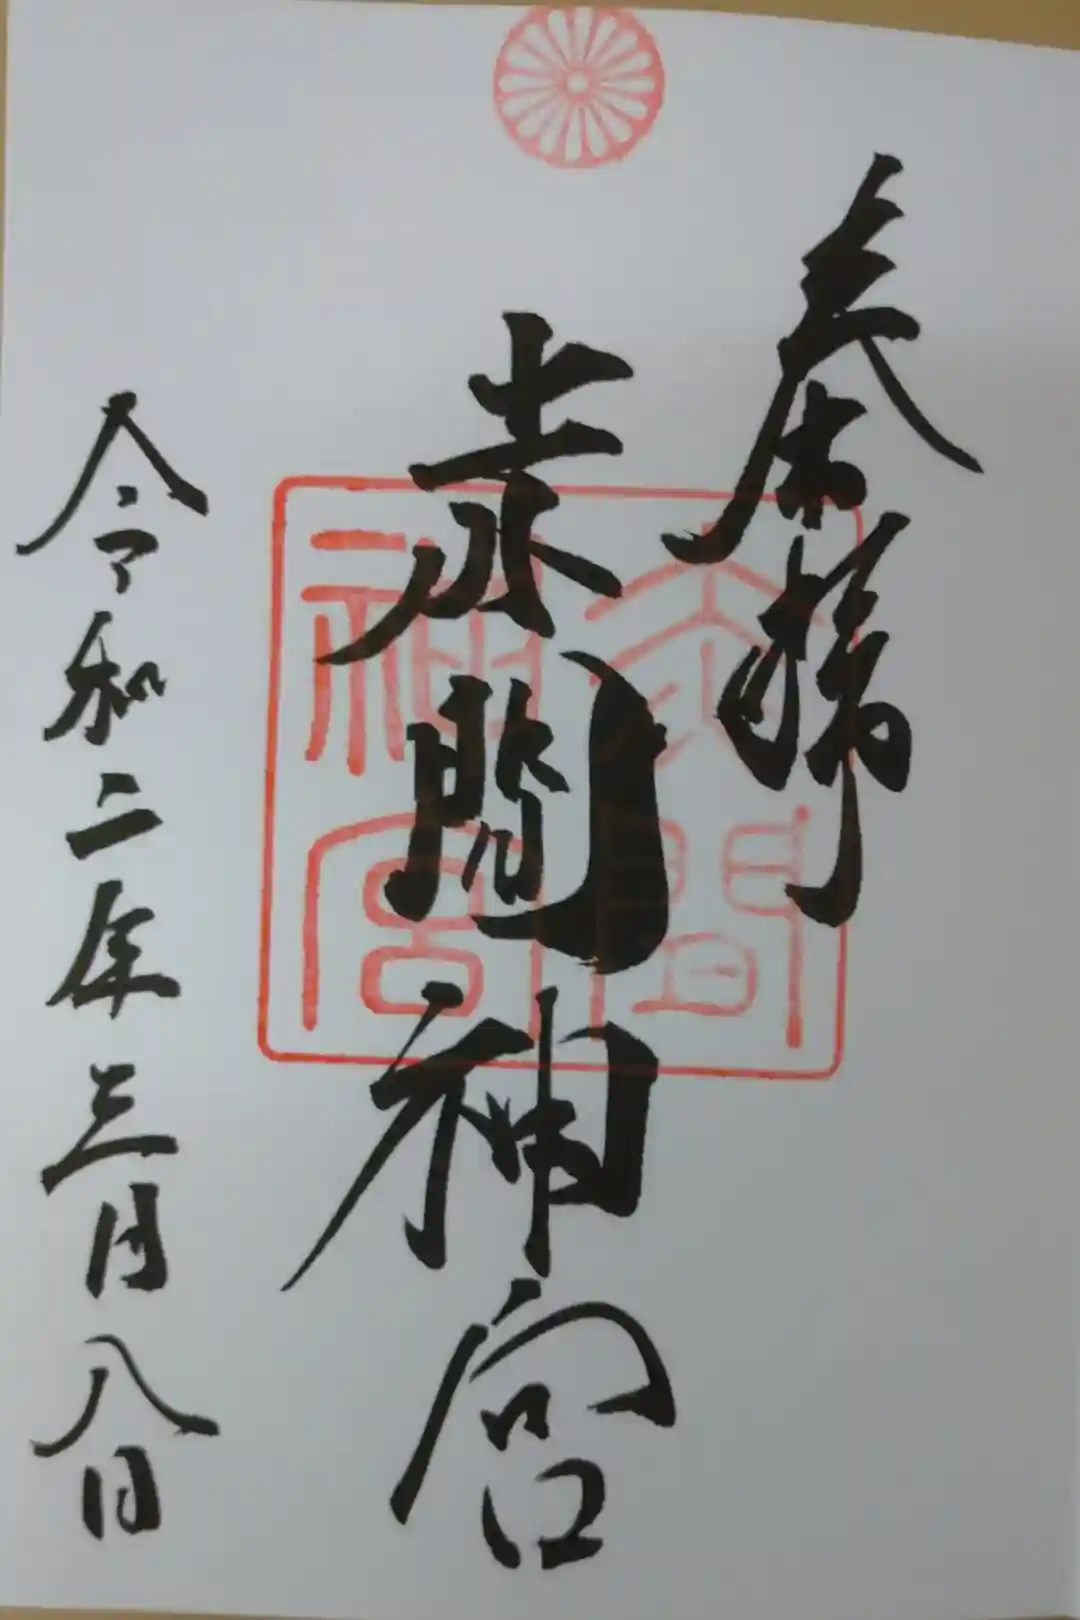 奉拝
赤間神宮
令和二年三月八日
赤間神宮